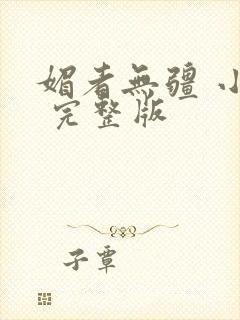 媚者無疆 小
完整版
子蕈